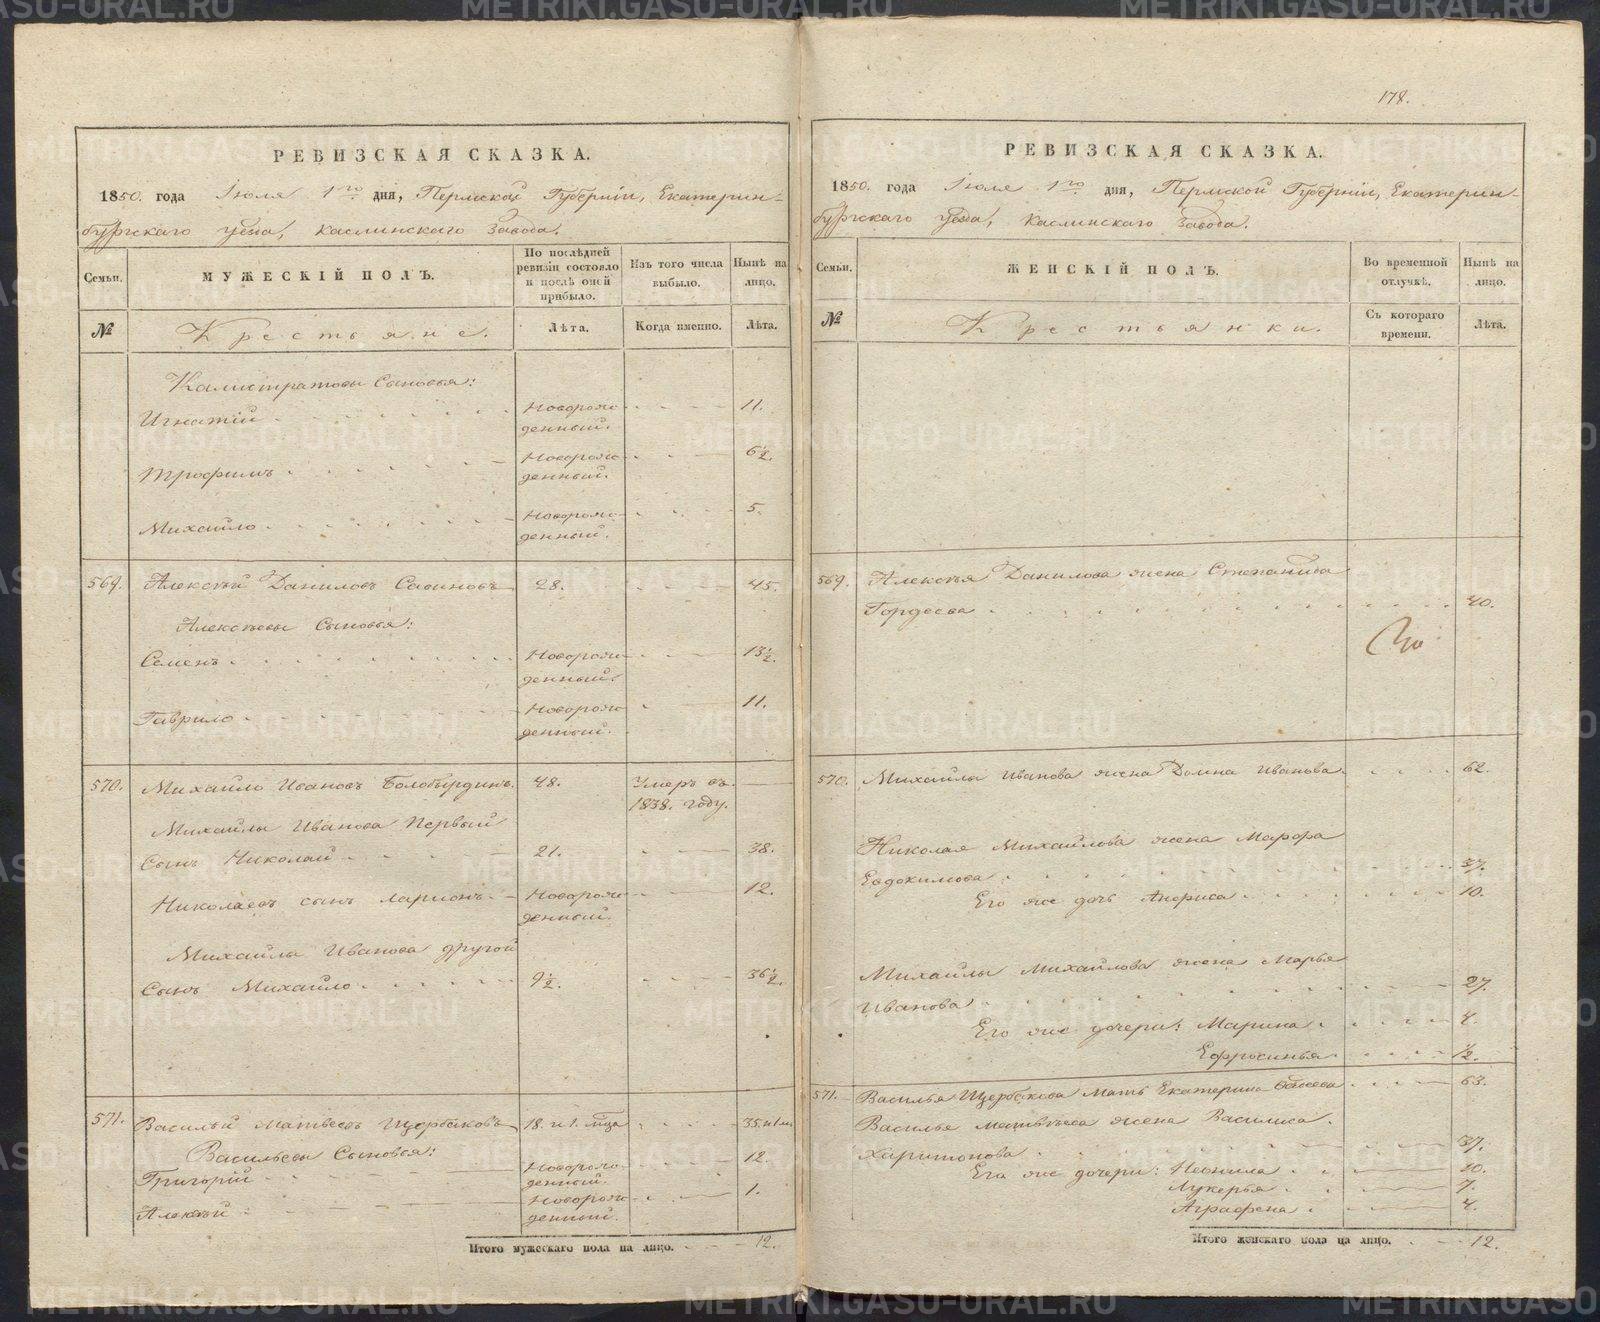 178.
РЕВИЗСКАЯ СКАЗКА.
1850. года Іюля 1го дня, Пермской Губерніи, Екатерин-
бургскаго уѣзда, Каслинскаго Завода.
Семьи.
МУЖЕСКІЙ ПОЛЪ.
По послѣдней
ревизіи состояло
и послѣ оной
прибыло.
Изъ того числа
выбыло.
Нынѣ на
лицо.
№
Крестьяне.
Лѣта.
Когда именно.
Лѣта.
Калистратовы Сыновья:
Игнатій
Новорож-
денный.
11.
Трофимъ
Новорож-
денный.
6½.
Михайло
Новорож-
денный.
5.
569. Алексѣй Даниловъ Савиновъ 28. 45.
Алексѣевы Сыновья:
Семенъ
Новорож-
денный.
13½.
Гаврило
Новорож-
денный.
11.
570. Михайло Ивановъ Болобырдинъ. 48. Умеръ въ
1838. году.
Михайлы Иванова Первый
Сынъ Николай 21. 38.
Николаевъ сынъ Ларионъ
Новорож-
денный.
12.
Михайла Иванова другой
Сынъ Михайло 9½. 36½.
571. Василий Матвеевъ Щербаковъ 18. и 1. мца 35. и 1 м
Васильевы Сыновья:
Григорій
Новорож-
денный.
12.
Алексѣй
Новорож-
денный.
1.
Итого мужескаго пола на лицо. 12.
РЕВИЗСКАЯ СКАЗКА.
1850. года Іюля 1го дня, Пермской Губерніи, Екатерин-
бургскаго уѣзда, Каслинскаго Завода.
Семьи.
ЖЕНСКІЙ ПОЛЪ.
Во временной
отлучкѣ.
Нынѣ на
лицо.
№
Крестьянки.
Съ котораго
времени.
Лѣта.
569. Алексѣя Данилова жена Степанида
Гордеева 40.
570. Михайлы Иванова жена Домна Иванова 62.
Николая Михайлова жена Марфа
Евдокимова 37.
Его же дочь Анфиса 10.
Михайлы Михайлова жена Марья
Иванова 27.
Его же дочери: Марина 4.
Ефросинья ½.
571. Василья Щербакова Мать Екатерина 63.
Василья Матвѣева жена Василиса
Харитонова 37.
Его же дочери: Неонила 10.
Лукерья 7.
Аграфена 4.
Итого женскаго пола на лицо. 12.
METRIKI.GASU-URAL.RU